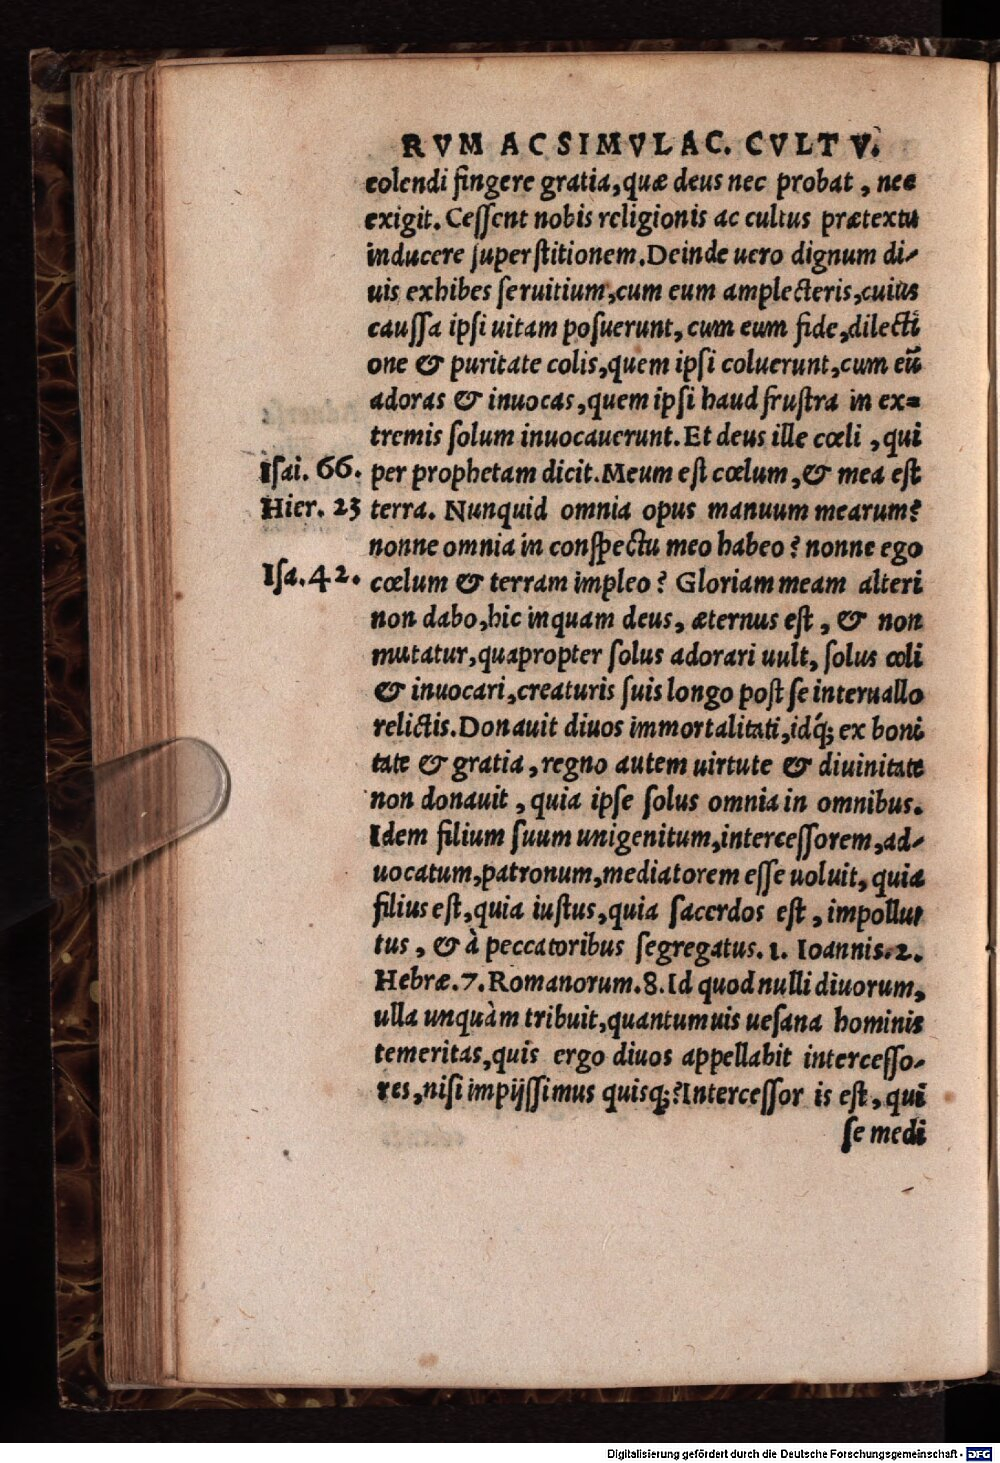 RVM AC SIMVLAC. CVLTV.
colendi fingere gratia, quæ deus nec probat, nec
exigit. Cessent nobis religionis ac cultus prætextu
inducere superstitionem. Deinde uero dignum di-
uis exhibes seruitium, cum eum amplecteris, cuius
caussa ipsi uitam posuerunt, cum eum fide, dilecti
one & puritate colis, quem ipsi coluerunt, cum eũ
adoras & inuocas, quem ipsi haud frustra in ex=
tremis solum inuocauerunt. Et deus ille cœli, qui
Isai. 66. per prophetam dicit. Meum est cœlum, & mea est
Hier. 23 terra. Nunquid omnia opus manuum mearum?
nonne omnia in conspectu meo habeo? nonne ego
Isa. 42. cœlum & terram impleo? Gloriam meam alteri
non dabo, hic inquam deus, æternus est, & non
mutatur, quapropter solus adorari uult, solus coli
& inuocari, creaturis suis longo post se interuallo
relictis. Donauit diuos immortalitati, idq́; ex boni
tate & gratia, regno autem uirtute & diuinitate
non donauit, quia ipse solus omnia in omnibus.
Idem filium suum unigenitum, intercessorem, ad-
uocatum, patronum, mediatorem esse uoluit, quia
filius est, quia iustus, quia sacerdos est, impollu-
tus, & à peccatoribus segregatus. 1. Ioannis. 2.
Hebræ. 7. Romanorum. 8. Id quod nulli diuorum,
ulla unquàm tribuit, quantumuis uesana hominis
temeritas, quis ergo diuos appellabit intercesso-
res, nisi impijssimus quisq;? Intercessor is est, qui
se medi
Digitalisierung gefördert durch die Deutsche Forschungsgemeinschaft - DFG